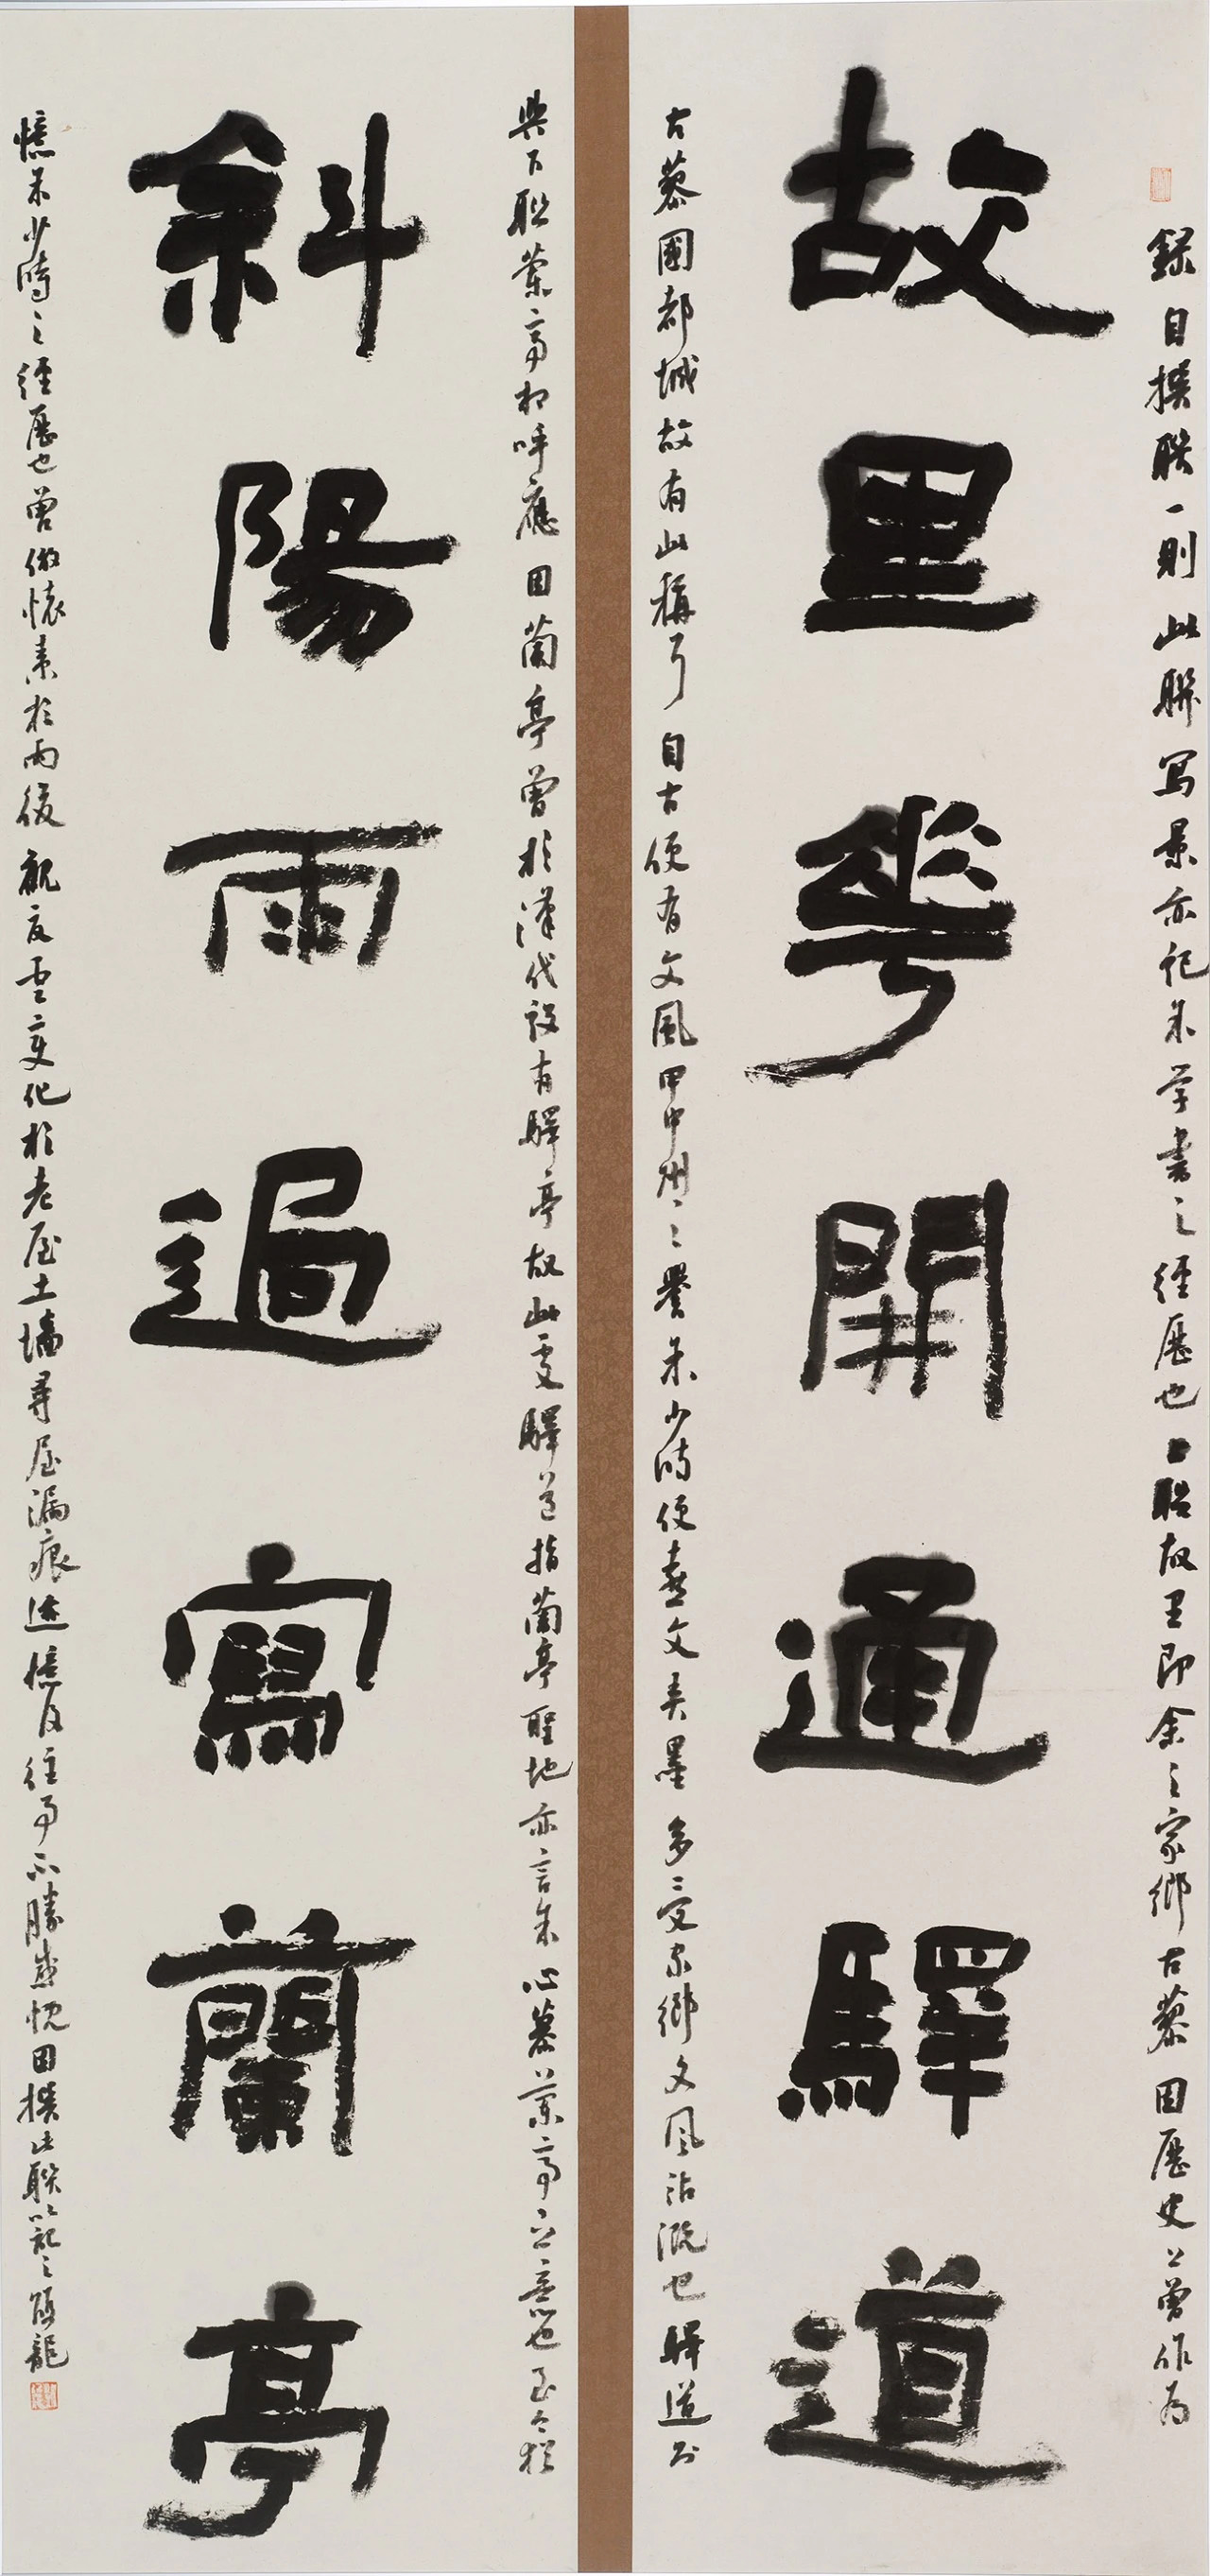 故里花開通驛道
斜陽雨過寫蘭亭
錄自撰聯一則此聯寫景亦記余學書之經歷也上聯故里即余之家鄉古蔡因歷史上曾作為
古蔡國都城故有此稱耳自古便有文風甲中州之譽余少時便喜文弄墨多受家鄉文風沾溉也驛道則
與下聯蘭亭相呼應因蘭亭曾於漢代設有驛亭故此處驛道指蘭亭聖地亦言余心慕蘭亭之意也至今猶
憶余少時之經歷也曾倣懷素於雨後觀夏雲變化於老屋土墻尋屋漏痕迹憶及往事不勝感忱因撰此聯以記之 龍